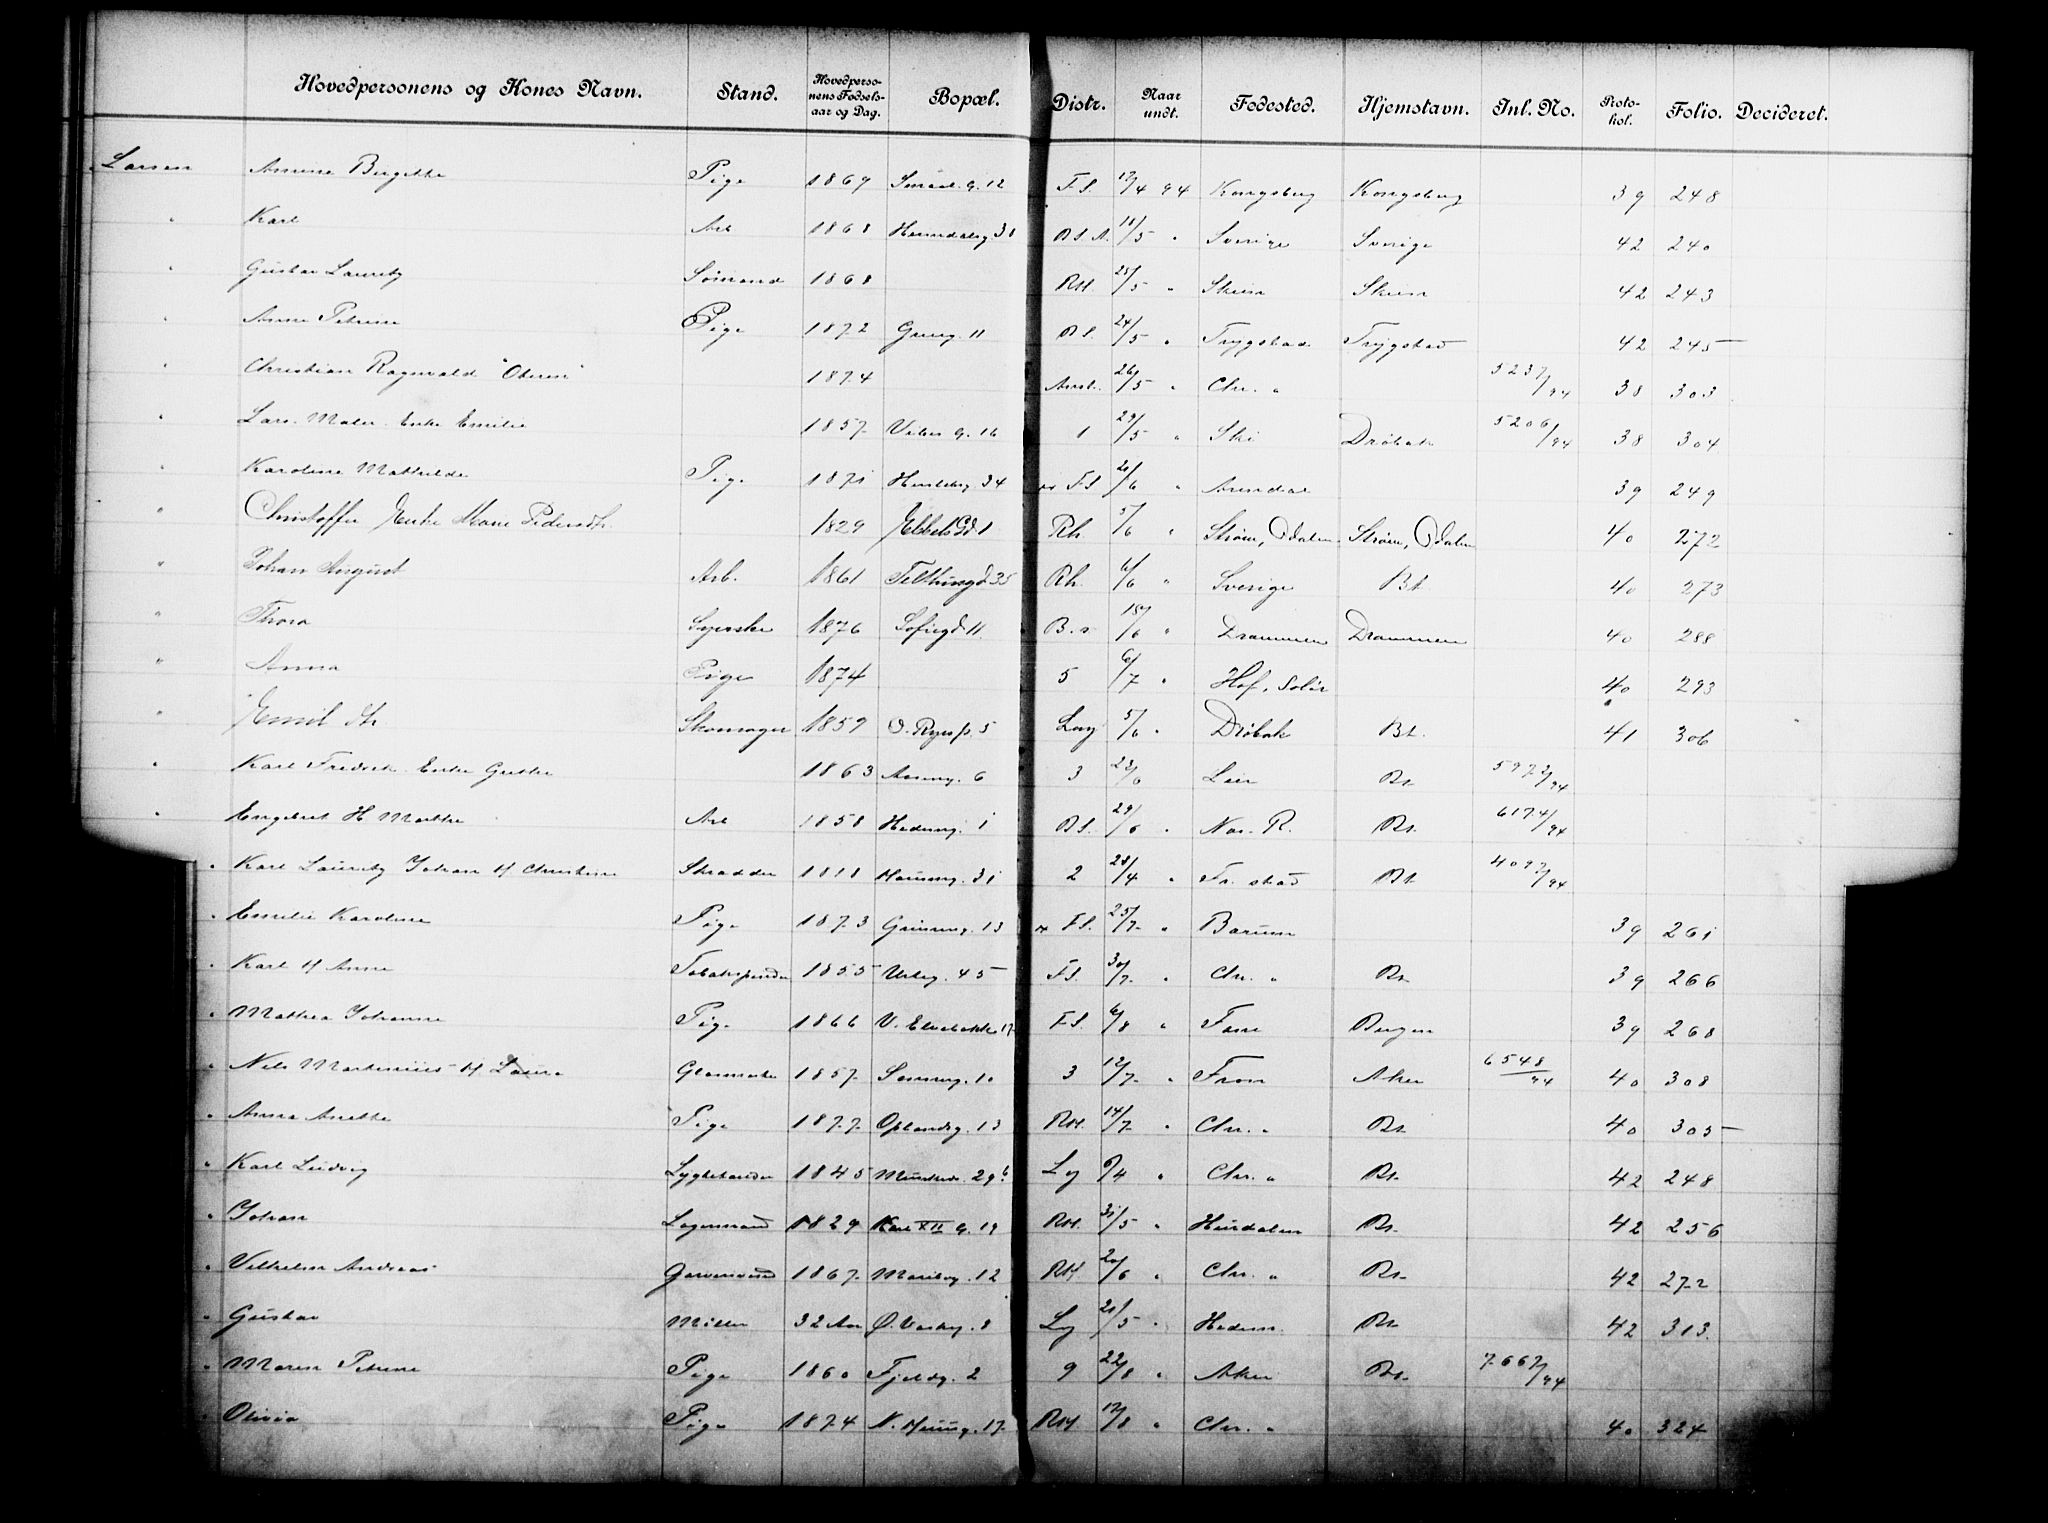 Hovedpersonens og Kones Navn. Stand. Hovedperso-nens Fødsels-aar og Dag. Bopæl. Distr. Naar undt. Fødested. Hjemstavn. Inl. No. Proto-kol. Folio. Decideret.
Larsen Anine Birgitte Pige 1869 Smed. g. 12 F.S. 12/4 94 Kongsberg Kongsberg 39 248
" Karl Arb 1868 Heimdalsg 38 18/5 " Sverige Sverige 42 240
" Gustav Lauritz Sømand 1868 RH. 25/5 " Skien Skien 42 243
" Anne Petrine Pige 1872 Grung. 11 Bl. 24/5 " Trygstad Trygstad 42 245
" Christian Ragnvald "Olsen" 1874 Anst. 26/5 " Chr. " 5237/94 38 303
" Lars. Maler. Enke Emilie 1857 Vibes g. 16 1 29/5 " Ski Drøbak 5206/94 38 304
" Karoline Mathilde Pige 1871 Herslebsg 34 F.S. 21/6 " Arendal 39 249
" Christoffer Enke Marie Pedersdtr. 1829 Rh 5/6 " Strøm, Odalen Strøm, Odalen 40 272
" Johan August Arb. 1861 Telthusgd 35 Rh. 6/6 " Sverige Bt. 40 273
" Thora Syerske 1876 Sofiegd 11 18/6 " Drammen Drammen 40 288
" Anna Pige 1874 5 6/7 " Hof, Solør 40 293
" Emil Th Skomager 1859 O. Ryes pl. 5 Lag 5/6 " Drøbak Bt. 41 306
" Karl Fredrik Enke Gustava 1863 Aaseng. 6 3 23/6 Lier Bt. 5972/94
" Engebret H. Marthe Arb 1858 Hedeng. 1 Bl. 29/6 " Nes. R. Bt. 6174/94
" Karl Lauritz Johan H Christine Skrædder 1818 Hausmg. 31 2 28/4 " Fr. stad Bt. 4092/94
" Emilie Karoline Pige 1873 Grüning. 13 F.S. 25/7 " Bærum 39 261
" Karl H Anne Tobakspinder 1855 Urteg. 45 F.S. 30/7 " Chr. " Bt. 39 266
" Mathea Johanne Pige 1866 V. Elvebakke 17 F.S. 6/8 " Fane Bergen 39 268
" Nils Martinius H Laura 1857 Sanneg. 10 3 12/7 " Fron Aker 6548/94 40 308
" Anna Anette Pige 1877 Oplandsg. 13 RH. 14/7 " Chr. " Bt. 40 305
" Karl Ludvig Lygtetænder 1845 Munkeda. 29 b Lg /4 " Chr. " Bt. 42 248
" Johan Lagermand 1829 Karl XII G. 19 RH. 31/5 " Hurdalen Bt. 42 256
" Vilhelm Andreas Garversvend 1867 Maridg. 12 RH 20/6 " Chr. " Bt. 42 272
" Gustav Møller 32 Aar Ø. Vaskeg. 8 Lg 21/5 " Hedem. Bt. 42 313
" Maren Petrine Pige 1860 Fjeldg. 2 9 22/8 " Aker Bt. 7667/94
" Olivia Pige 1874 N. Hausg. 17 RH. 12/8 " Chr. " 40 324